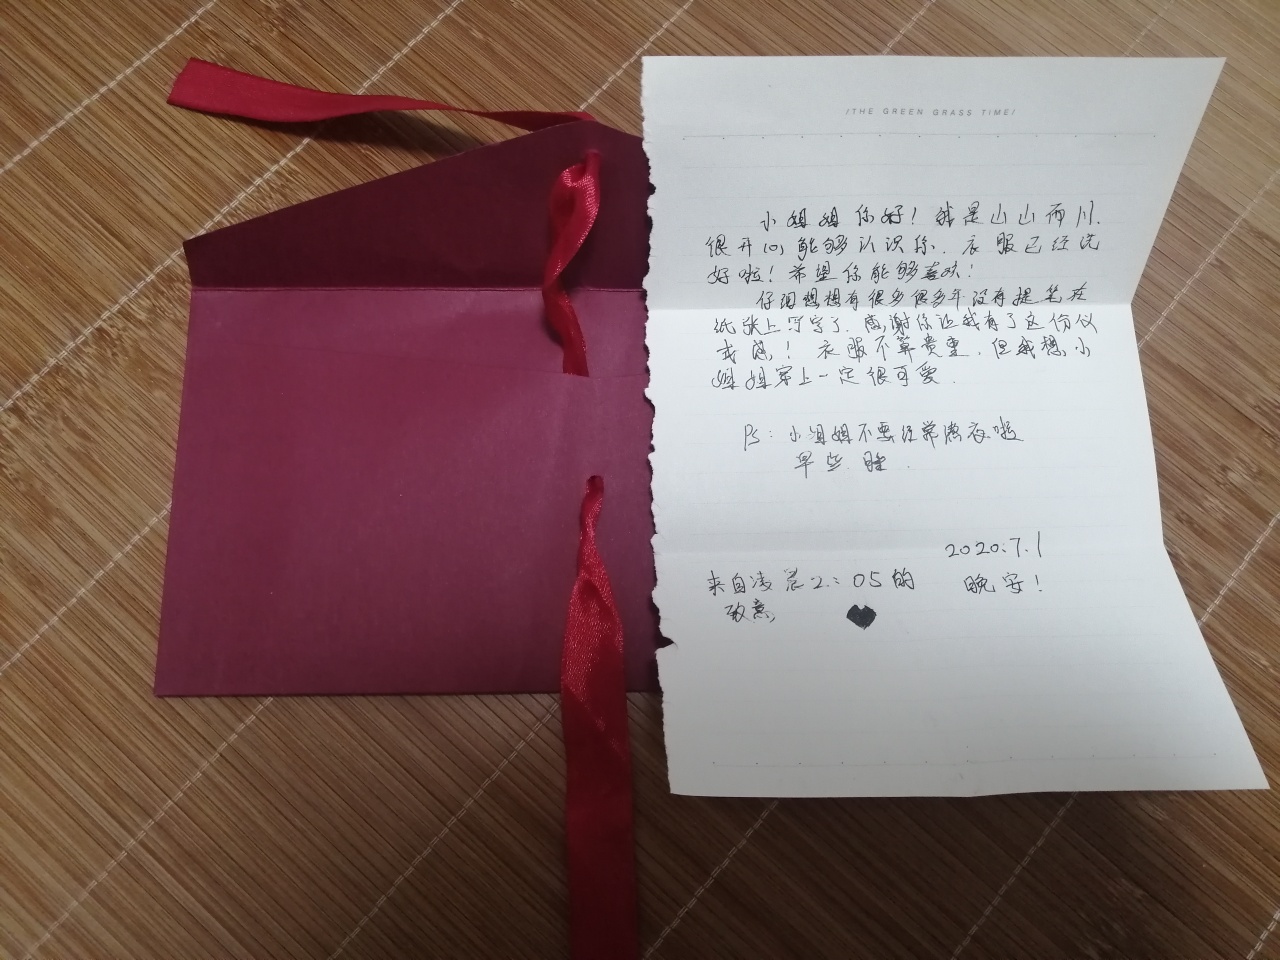 /THE GREEN GRASS TIME/
小姐姐你好！我是山山而川.
很开心能够认识你. 衣服已经洗
好啦！希望你能够喜欢！
仔细想想有很多很多年没有提笔在
纸张上写字了. 感谢你让我有了这份仪
式感！衣服不算贵重. 但我想小
姐姐穿上一定很可爱.
Ps: 小姐姐不要经常熬夜啦
早些睡.
2020.7.1
来自凌晨2:05的
晚安！
致意,